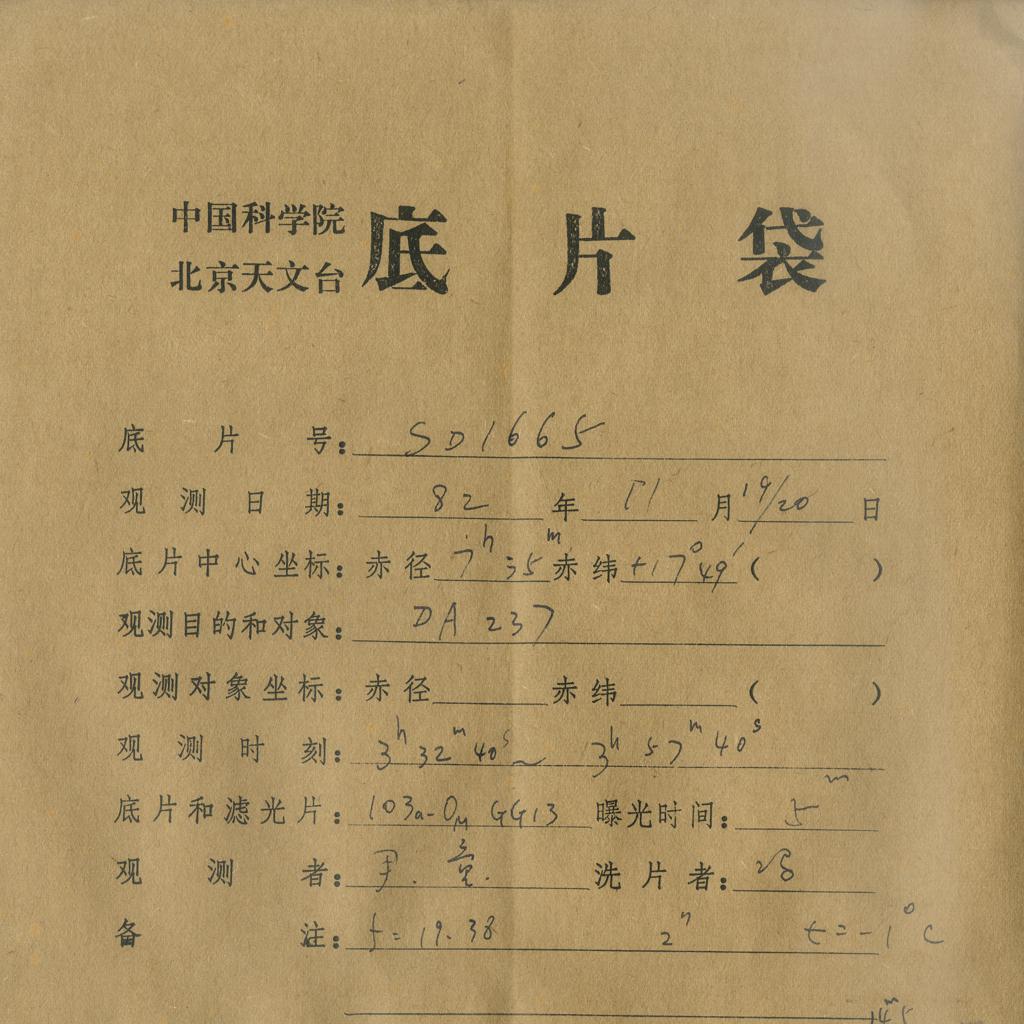 中国科学院
北京天文台
底片袋
底片号: SD1665
观测日期: 82年11月19/20日
底片中心坐标: 赤径 7h35m 赤纬 +17°49′ ( )
观测目的和对象: DA 237
观测对象坐标: 赤径 赤纬 ( )
观测时刻: 3h32m40s ~ 3h57m40s
底片和滤光片: 103a-OM GG13 曝光时间: 5m
观测者: 尹. 童. 洗片者: 冯
备注: f=19.38 2" t=-1°C